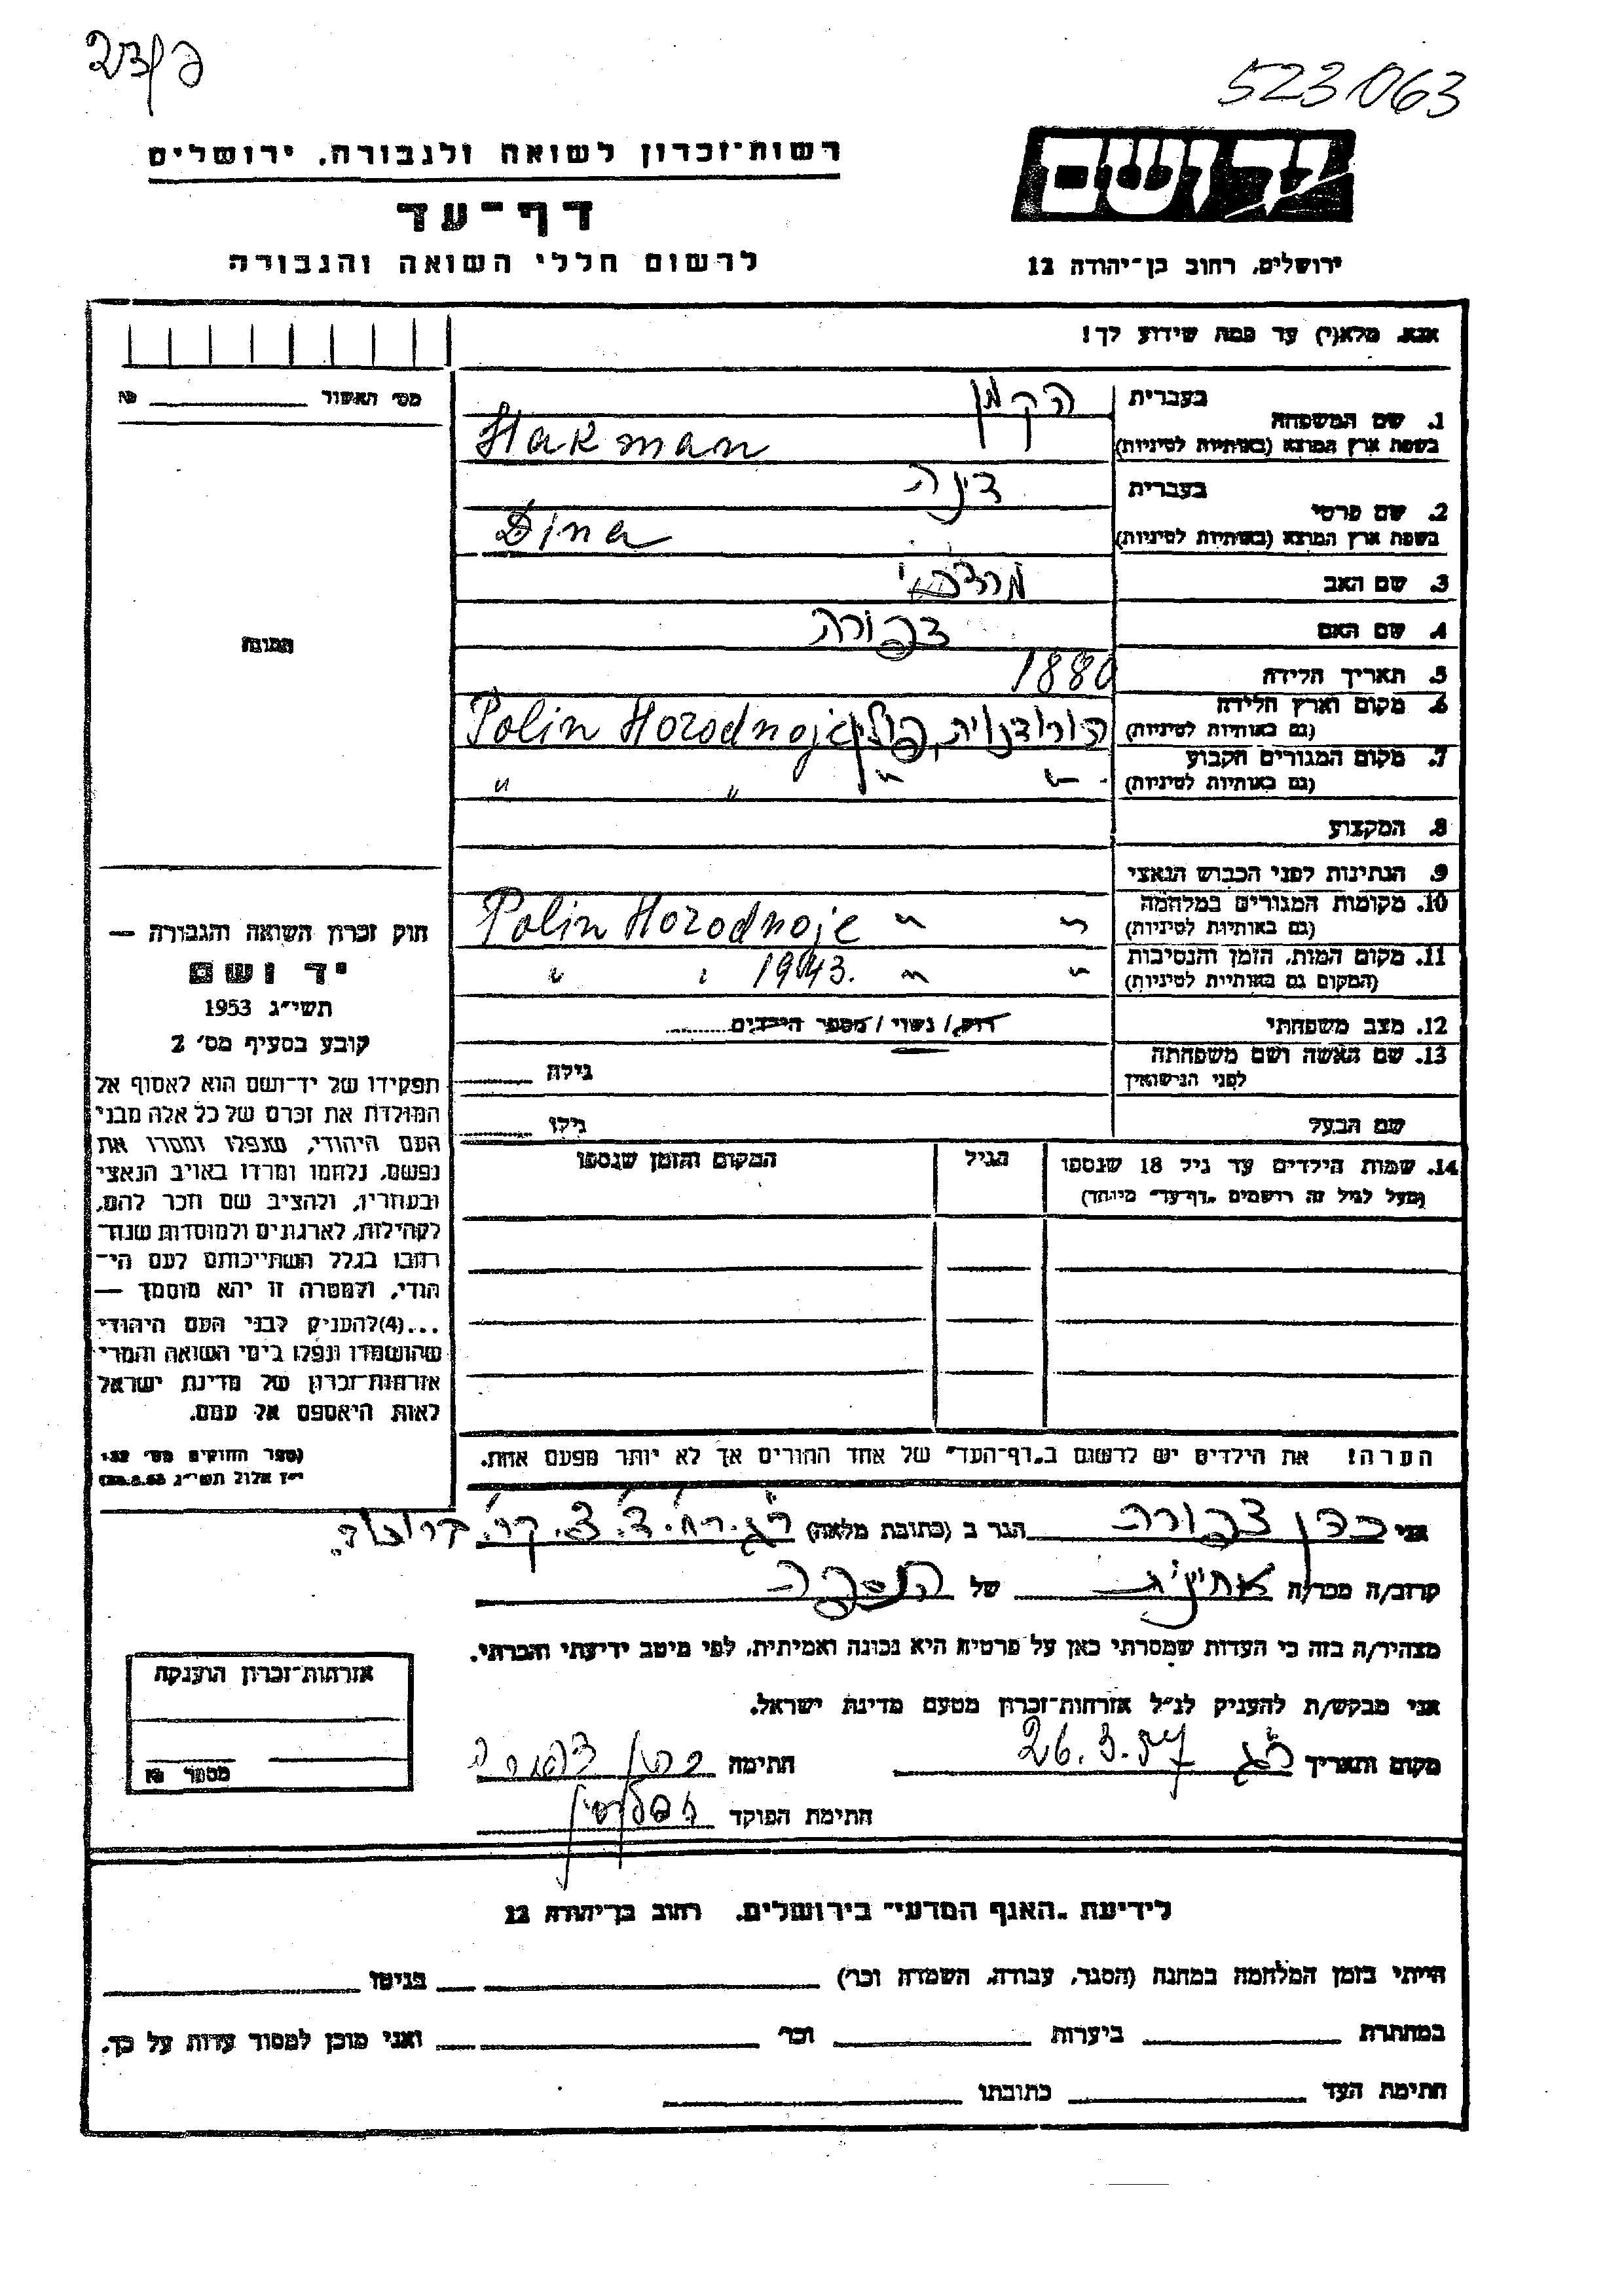 523063
רשות־זכרון לשואה ולגבורה, ירושלים
יד ושם
דף־עד
לרשום חללי השואה והגבורה
ירושלים, רחוב בן־יהודה 12
אנא, מלא(י) עד כמה שידוע לך!
מס׳ האשור №
1. שם המשפחה
בעברית הקמן
בשפת ארץ המוצא (באותיות לטיניות) Hakman
2. שם פרטי
בעברית דינה
בשפת ארץ המוצא (באותיות לטיניות) Dina
3. שם האב מרדכאי
4. שם האם צפורה
5. תאריך הלידה 1880
6. מקום וארץ הלידה
(גם באותיות לטיניות) הורודנויה, פולין Polin Horodnoje
7. מקום המגורים הקבוע
(גם באותיות לטיניות) " " " "
8. המקצוע
9. הנתינות לפני הכבוש הנאצי
10. מקומות המגורים במלחמה
(גם באותיות לטיניות) " " Polin Horodnoje
11. מקום המות, הזמן והנסיבות
(המקום גם באותיות לטיניות) " " 1943. " "
12. מצב משפחתי רווק / נשוי / מספר הילדים
13. שם האשה ושם משפחתה
לפני הנישואין גילה
שם הבעל גילו
14. שמות הילדים עד גיל 18 שנספו
(מעל לגיל זה רושמים „דף־עד" מיוחד)
הגיל
המקום והזמן שנספו
הערה! את הילדים יש לרשום ב„דף־העד" של אחד ההורים אך לא יותר מפעם אחת.
התמונה
חוק זכרון השואה והגבורה —
יד ושם
תשי״ג 1953
קובע בסעיף מס׳ 2
תפקידו של יד־ושם הוא לאסוף אל
המולדת את זכרם של כל אלה מבני
העם היהודי, שנפלו ומסרו את
נפשם, נלחמו ומרדו באויב הנאצי
ובעוזריו, ולהציב שם וזכר להם,
לקהילות, לארגונים ולמוסדות שנח־
רבו בגלל השתייכותם לעם הי־
הודי, ולמטרה זו יהא מוסמך —
...(4) להעניק לבני העם היהודי
שהושמדו ונפלו בימי השואה והמרי
אזרחות־זכרון של מדינת ישראל
לאות היאספם אל עמם.
(ספר החוקים מס׳ 132
י״ז אלול תשי״ג 28.8.53)
אני צפורה הגר ב (כתובת מלאה)
קרוב/ה מכר/ה של
מצהיר/ה בזה כי העדות שמסרתי כאן על פרטיה היא נכונה ואמיתית, לפי מיטב ידיעתי והכרתי.
אני מבקש/ת להעניק לנ״ל אזרחות־זכרון מטעם מדינת ישראל.
מקום ותאריך 26.3.57 חתימה צפורה
חתימת הפוקד
אזרחות־זכרון הוענקה
מספר №
לידיעת „האגף המדעי" בירושלים, רחוב בן־יהודה 12
הייתי בזמן המלחמה במחנה (הסגר, עבודה, השמדה וכו׳) בגיטו
במחתרת ביערות וכו׳ ואני מוכן למסור עדות על כך.
חתימת העד כתובתו